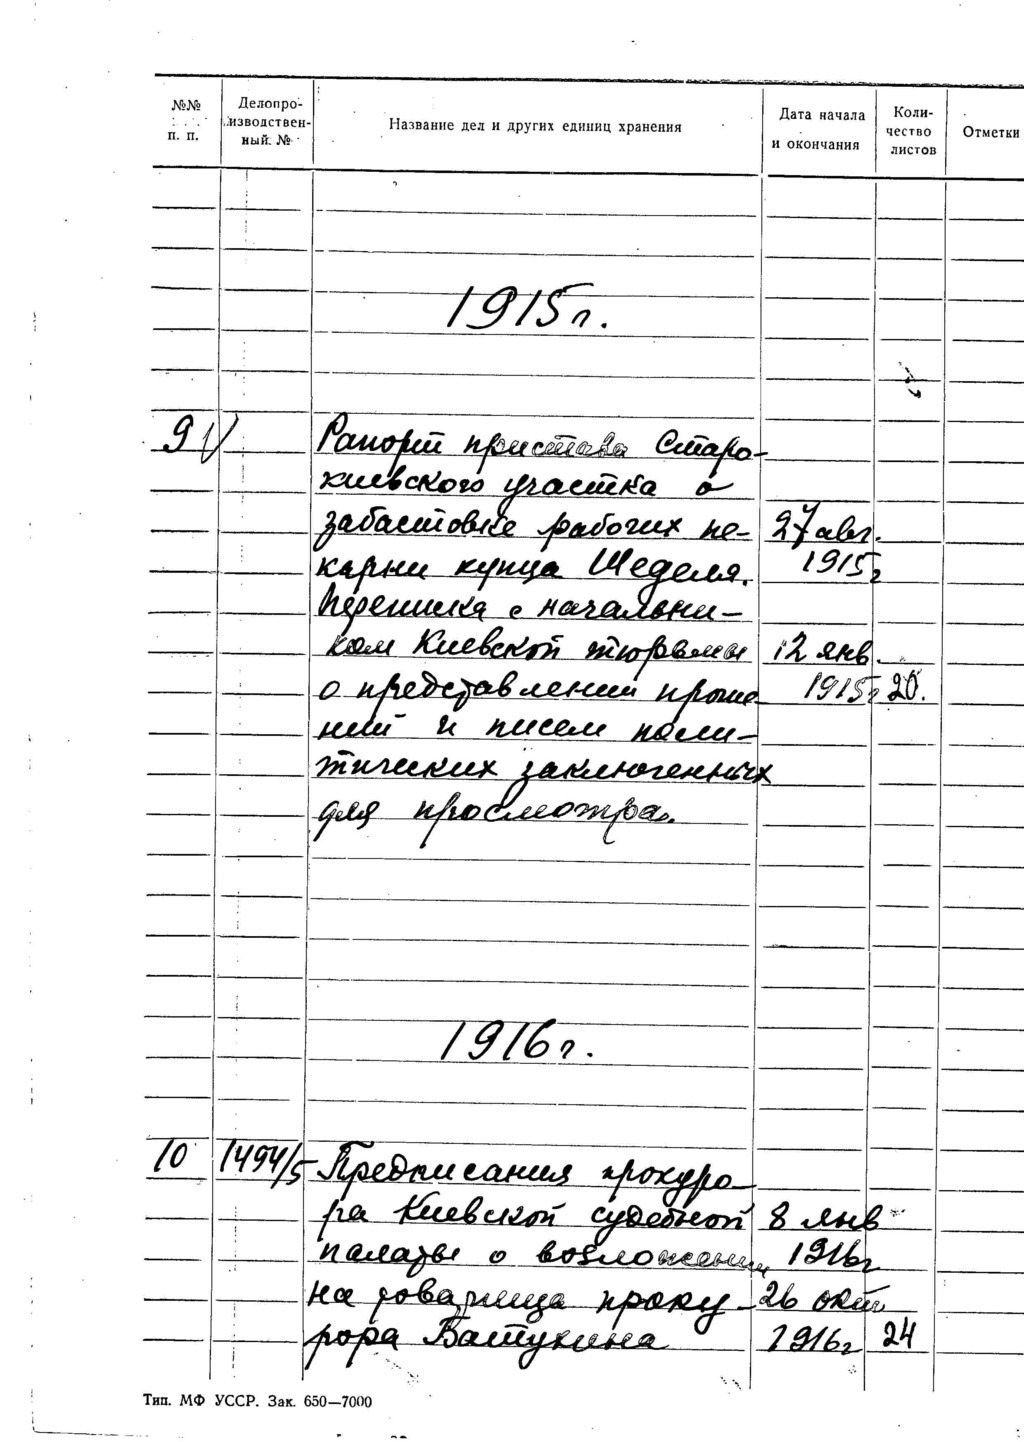 №№ п. п.
Делопроизводственный №
Название дел и других единиц хранения
Дата начала и окончания
Количество листов
Отметки
1915г.
9
Рапорт пристава Старо-
киевского участка о
забастовке рабочих пе- 27 авг.
карни купца Шеделя. 1915г
Переписка с начальни-
ком Киевской тюрьмы 12 янв.
о представлении проше 1915г 20.
ний и писем поли-
тических заключенных
для просмотра.
1916г.
10 1494/5 Предписания прокуро-
ра Киевской судебной 8 янв
палаты о возложении 1916г
на товарища проку- 26 окт
рора Батукина 1916г 24
Тип. МФ УССР. Зак. 650—7000